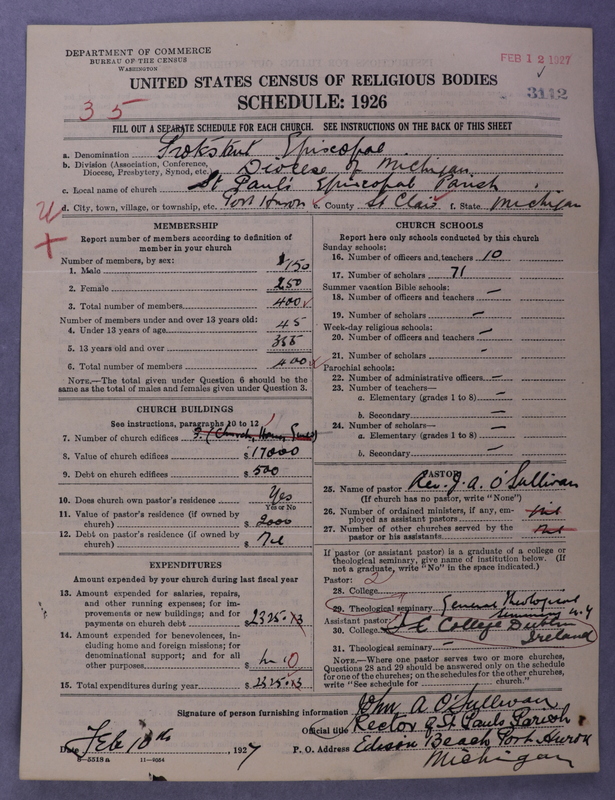 DEPARTMENT OF COMMERCE
BUREAU OF THE CENSUS
WASHINGTON
FEB 12 1927
3112
UNITED STATES CENSUS OF RELIGIOUS BODIES
SCHEDULE: 1926
35
FILL OUT A SEPARATE SCHEDULE FOR EACH CHURCH. SEE INSTRUCTIONS ON THE BACK OF THIS SHEET
a. Denomination Protestant Episcopal
b. Division (Association, Conference, Diocese, Presbytery, Synod, etc.) Diocese of Michigan
c. Local name of church St Paul's Episcopal Parish
d. City, town, village, or township, etc. Port Huron e. County St Clair f. State Michigan
MEMBERSHIP
Report number of members according to definition of
member in your church
Number of members, by sex:
1. Male 150
2. Female 250
3. Total number of members 400
Number of members under and over 13 years old:
4. Under 13 years of age 45
5. 13 years old and over 355
6. Total number of members 400
NOTE.—The total given under Question 6 should be
same as the total of males and females given under Question 3.
CHURCH BUILDINGS
See instructions, paragraphs 10 to 12
7. Number of church edifices 3. (Church, House, Guild)
8. Value of church edifices $ 17000
9. Debt on church edifices $ 500
10. Does church own pastor's residence Yes
Yes or No
11. Value of pastor's residence (if owned by
church) $ 2000
12. Debt on pastor's residence (if owned by
church) $ Nil
EXPENDITURES
Amount expended by your church during last fiscal year
13. Amount expended for salaries, repairs,
and other running expenses; for im-
provements or new buildings; and for
payments on church debt $ 2325.
14. Amount expended for benevolences, in-
cluding home and foreign missions; for
denominational support; and for all
other purposes $
15. Total expenditures during year $ 2325.
CHURCH SCHOOLS
Report here only schools conducted by this church
Sunday schools:
16. Number of officers and teachers 10
17. Number of scholars 71
Summer vacation Bible schools:
18. Number of officers and teachers —
19. Number of scholars —
Week-day religious schools:
20. Number of officers and teachers —
21. Number of scholars —
Parochial schools:
22. Number of administrative officers —
23. Number of teachers—
a. Elementary (grades 1 to 8) —
b. Secondary —
24. Number of scholars—
a. Elementary (grades 1 to 8) —
b. Secondary —
PASTOR
25. Name of pastor Rev. J. A. O'Sullivan
(If church has no pastor, write "None")
26. Number of ordained ministers, if any, em-
ployed as assistant pastors Nil
27. Number of other churches served by the
pastor or his assistants Nil
If pastor (or assistant pastor) is a graduate of a college or
theological seminary, give name of institution below. (If
not a graduate, write "No" in the space indicated.)
Pastor: 2
28. College
29. Theological seminary General Theological
Seminary N.Y
Assistant pastor:
30. College T C College Dublin
Ireland
31. Theological seminary —
NOTE.—Where one pastor serves two or more churches,
Questions 28 and 29 should be answered only on the schedule
for one of the churches; on the schedules for the other churches,
write "See schedule for church."
Signature of person furnishing information John A O'Sullivan
Official title Rector of St Pauls Parish
Date Feb 10th, 1927 P. O. Address Edison Beach Port Huron
Michigan
8—5518a 11—9054